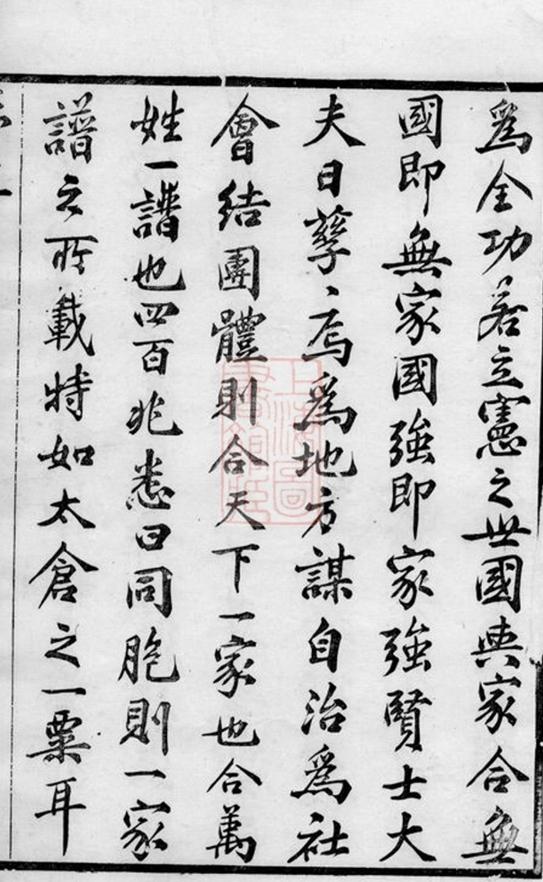 爲全功若立憲之世國與家合無
國即無家國強即家強賢士大
夫日孳〻焉爲地方謀自治爲社
會結團體則合天下一家也合萬
姓一譜也四百兆悉曰同胞則一家
譜之所載特如太倉之一粟耳